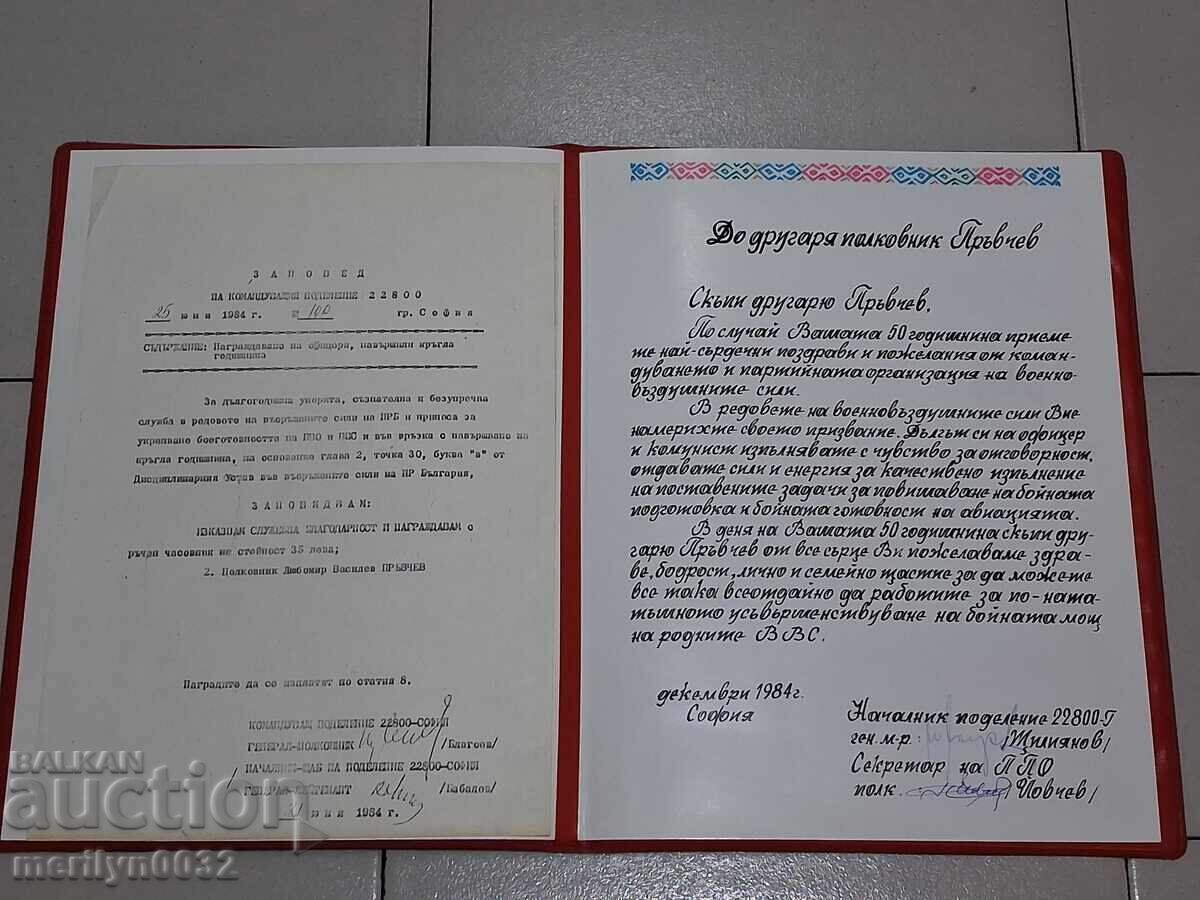 ЗАПОВЕД
НА КОМАНДУВАЩИЯ ПОДЕЛЕНИЕ 22800
25 юни 1984 г. № 100 гр. София
СЪДЪРЖАНИЕ: Награждаване на офицери, навършили кръгла
годишнина
За дългогодишна упорита, съзнателна и безупречна
служба в редовете на въоръжените сили на НРБ и приноса за
укрепване боеготовността на ПВО и ВВС и във връзка с навършване на
кръгла годишнина, на основание глава 2, точка 30, буква "в" от
Дисциплинарния Устав във въоръжените сили на НР България,
ЗАПОВЯДВАМ:
ИЗКАЗВАМ СЛУЖЕБНА БЛАГОДАРНОСТ И НАГРАЖДАВАМ с
ръчен часовник на стойност 35 лева;
2. Полковник Любомир Василев ПРЪВЧЕВ
Наградите да се изплатят по статия 8.
КОМАНДУВАЩ ПОДЕЛЕНИЕ 22800-СОФИЯ
ГЕНЕРАЛ-ПОЛКОВНИК /Благоев/
НАЧАЛНИК-ЩАБ НА ПОДЕЛЕНИЕ 22800-СОФИЯ
ГЕНЕРАЛ-ЛЕЙТЕНАНТ /Бабалов/
21 юни 1984 г.
До другаря полковник Пръвчев
Скъпи другарю Пръвчев,
По случай Вашата 50 годишнина приеме-
те най-сърдечни поздрави и пожелания от коман-
дуването и партийната организация на военно-
въздушните сили.
В редовете на военновъздушните сили Вие
намерихте своето призвание. Дългът си на офицер
и комунист изпълнявате с чувство за отговорност,
отдавате сили и енергия за качествено изпълнение
на поставените задачи за повишаване на бойната
подготовка и бойната готовност на авиацията.
В деня на Вашата 50 годишнина скъпи дру-
гарю Пръвчев от все сърце Ви пожелаваме здра-
ве, бодрост, лично и семейно щастие за да можете
все така всеотдайно да работите за по-ната-
тъшното усъвършенствуване на бойната мощ
на родните ВВС.
декември 1984 г.
София
Началник поделение 22800-Г
ген. м-р: /Щилиянов/
Секретар на ППО
полк. /Йовчев/
BALKAN
auction
merilyn0032